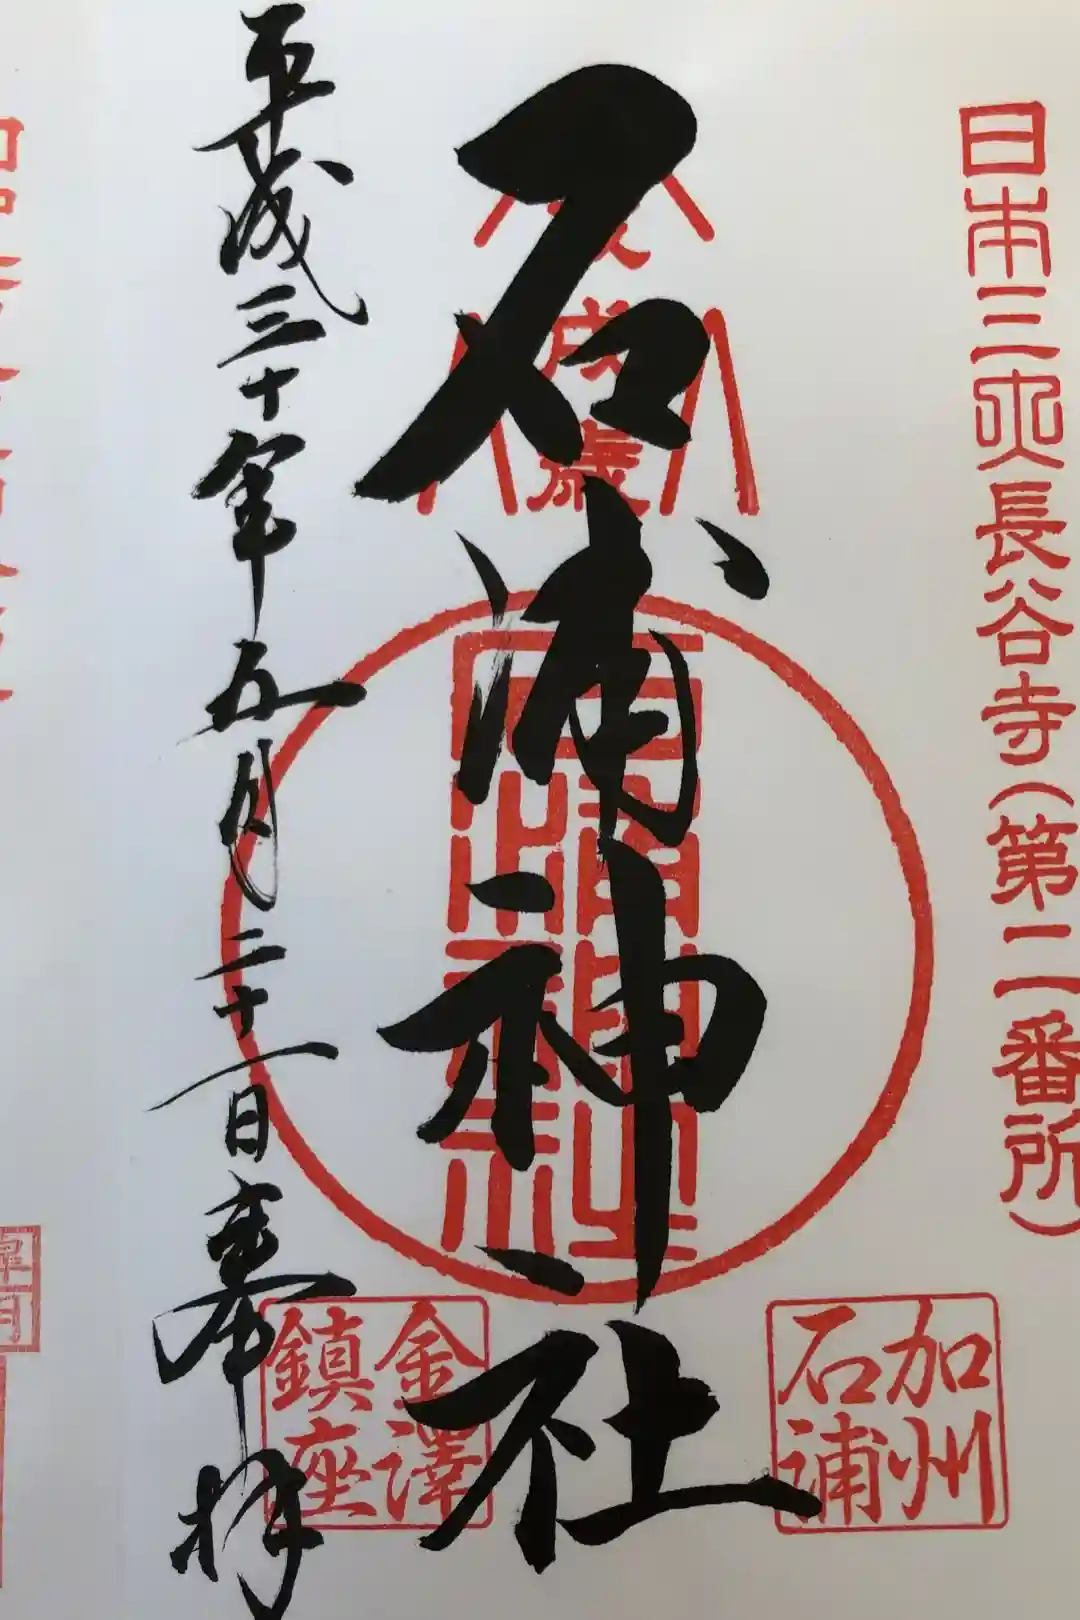 日本三大長谷寺(第二番所)
石浦神社
戌歳
加州
石浦
金澤
鎮座
平成三十年五月二十一日奉拝